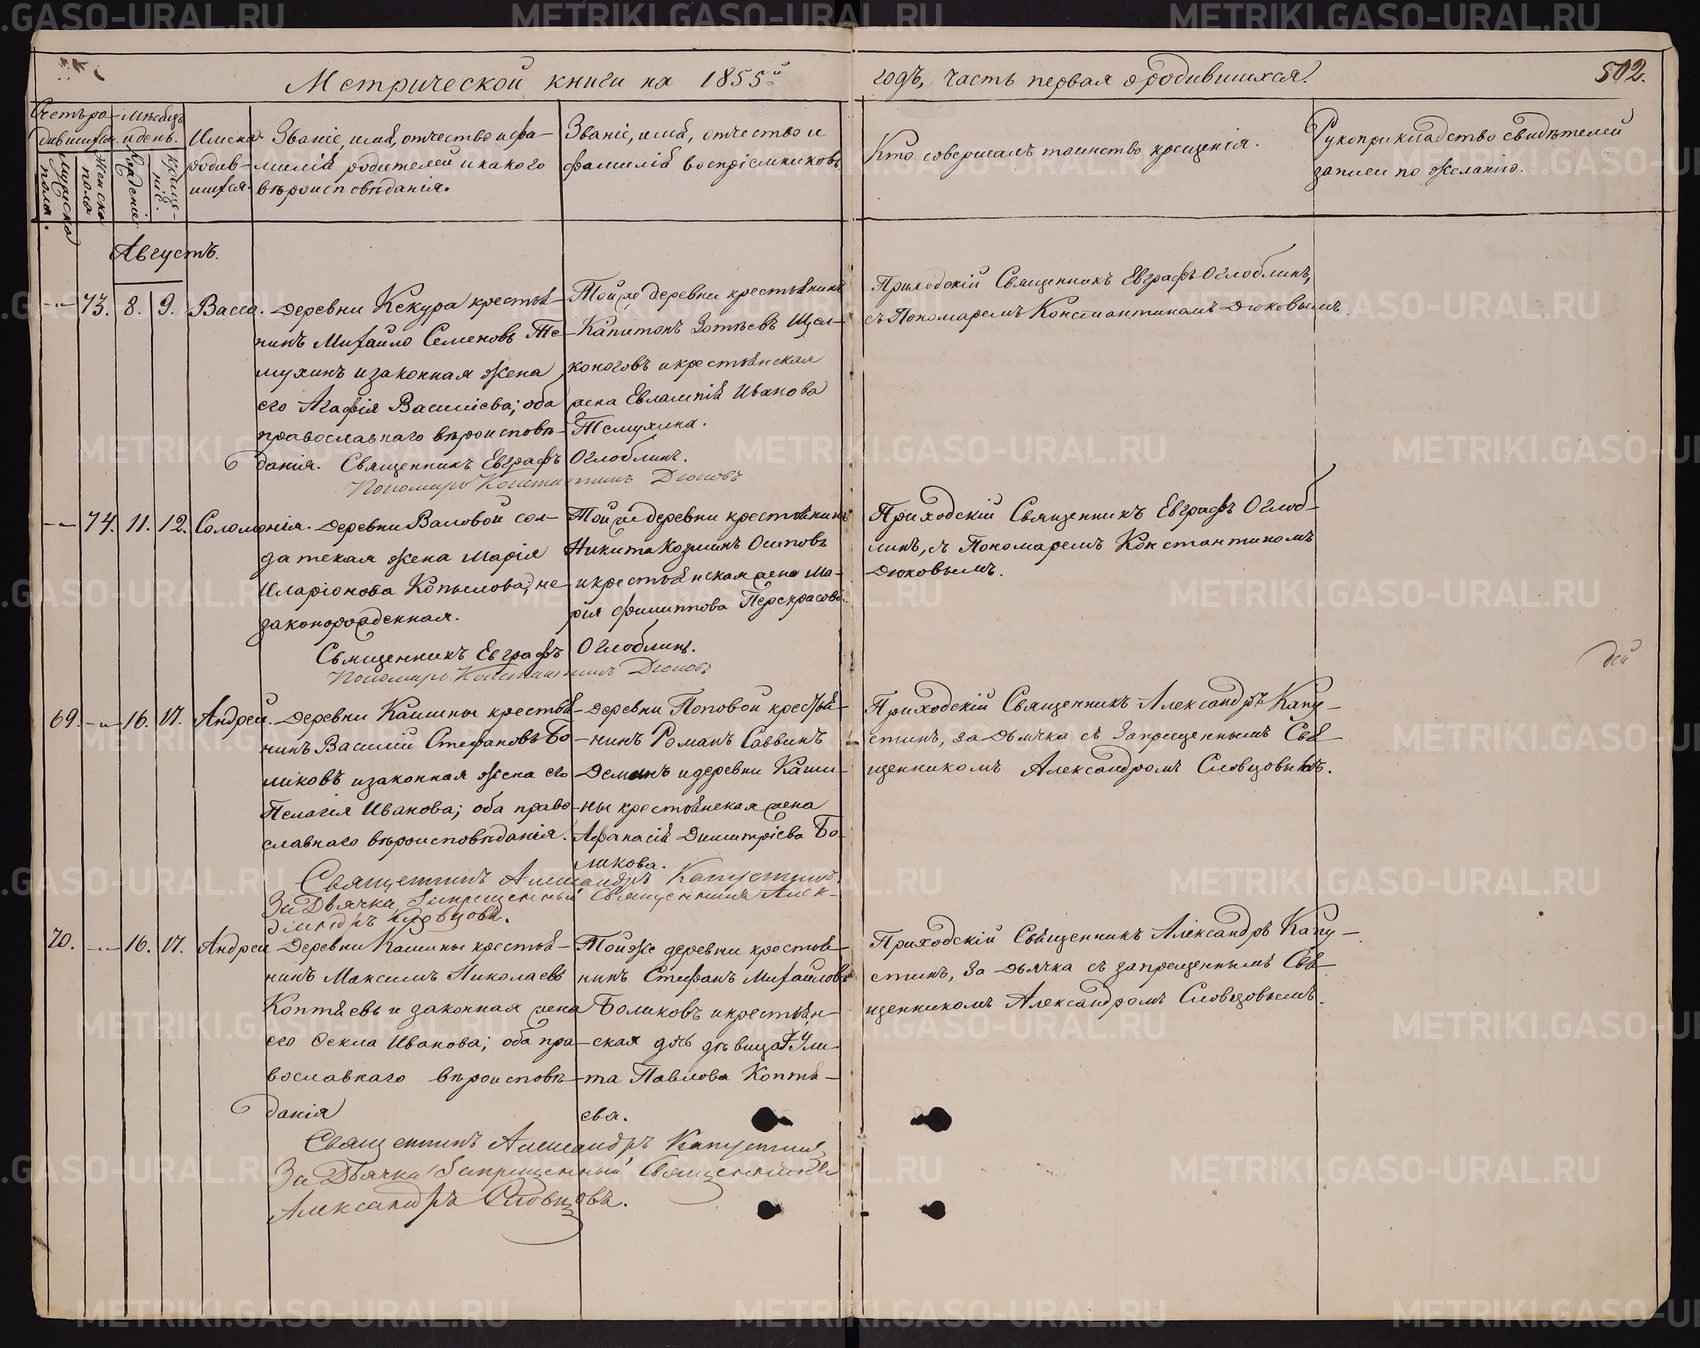 Метрической книги на 1855й
годъ, часть первая о родившихся.
502.
Счетъ ро-
дившихся.
Мужеска пола.
Женска пола
Мѣсяцъ
и день.
Рожденія.
Крещенія.
Имена
родив-
шихся.
Званіе, имя, отчество и фа-
милія родителей и какого
вѣроисповѣданія.
Званіе, имя, отчество и
фамилія воспріемниковъ
Кто совершалъ таинство крещенія.
Рукоприкладство свидѣтелей
записи по желанію.
Августъ.
-"- 73. 8. 9. Васса.
деревни Кекура крестья-
нинъ Михайло Семеновъ Те-
мухинъ и законная жена
его Агафія Василіева; оба
православнаго вѣроисповѣ-
данія. Священникъ Евграфъ Оглоблинъ.
Пономарь Константинъ Дюковъ
Той же деревни крестьянинъ
Капитонъ Зотѣевъ Щел-
коноговъ и крестьянская
жена Евлампія Иванова
Темухина.
Приходскій Священникъ Евграфъ Оглоблинъ,
съ Пономаремъ Константиномъ Дюковымъ.
-"- 74. 11. 12. Соломонія.
деревни Валовой сол-
датская жена Марія
Иларіонова Копылова; не-
законорожденная.
Священникъ Евграфъ Оглоблинъ.
Пономарь Константинъ Дюковъ
Той же деревни крестьянинъ
Никита Козминъ Осиповъ
и крестьянская жена Ма-
рія Филиппова Перекрасова.
Приходскій Священникъ Евграфъ Оглоб-
линъ, съ Пономаремъ Константиномъ
Дюковымъ.
69. -"- 16. 17. Андрей.
деревни Кашины крестья-
нинъ Василій Стефановъ Бо-
ликовъ и законная жена его
Пелагея Иванова; оба право-
славнаго вѣроисповѣданія.
Священникъ Александръ Капустинъ
За Дьячка Запрещенный Священникъ Алек-
сандръ Словцовъ.
деревни Поповой крестья-
нинъ Романъ Саввинъ
Деминъ и деревни Каши-
ны крестьянская жена
Афанасія Димитріева Бо-
ликова.
Приходскій Священникъ Александръ Капу-
стинъ, за Дьячка съ Запрещеннымъ Свя-
щенникомъ Александромъ Словцовымъ.
70. -"- 16. 17. Андрей
Деревни Кашины крестья-
нинъ Максимъ Николаевъ
Коптяевъ и законная жена
его Фекла Иванова; оба пра-
вославнаго вѣроисповѣ-
данія
Священникъ Александръ Капустинъ
За Дьячка Запрещенный Священникъ
Александръ Словцовъ.
Той же деревни крестья-
нинъ Стефанъ Михайловъ
Боликовъ и крестьян-
ская дочь дѣвица Ули-
та Павлова Коптя-
ева.
Приходскій Священникъ Александръ Капу-
стинъ, За Дьячка съ запрещеннымъ Свя-
щенникомъ Александромъ Словцовымъ.
дей
METRIKI.GASO-URAL.RU